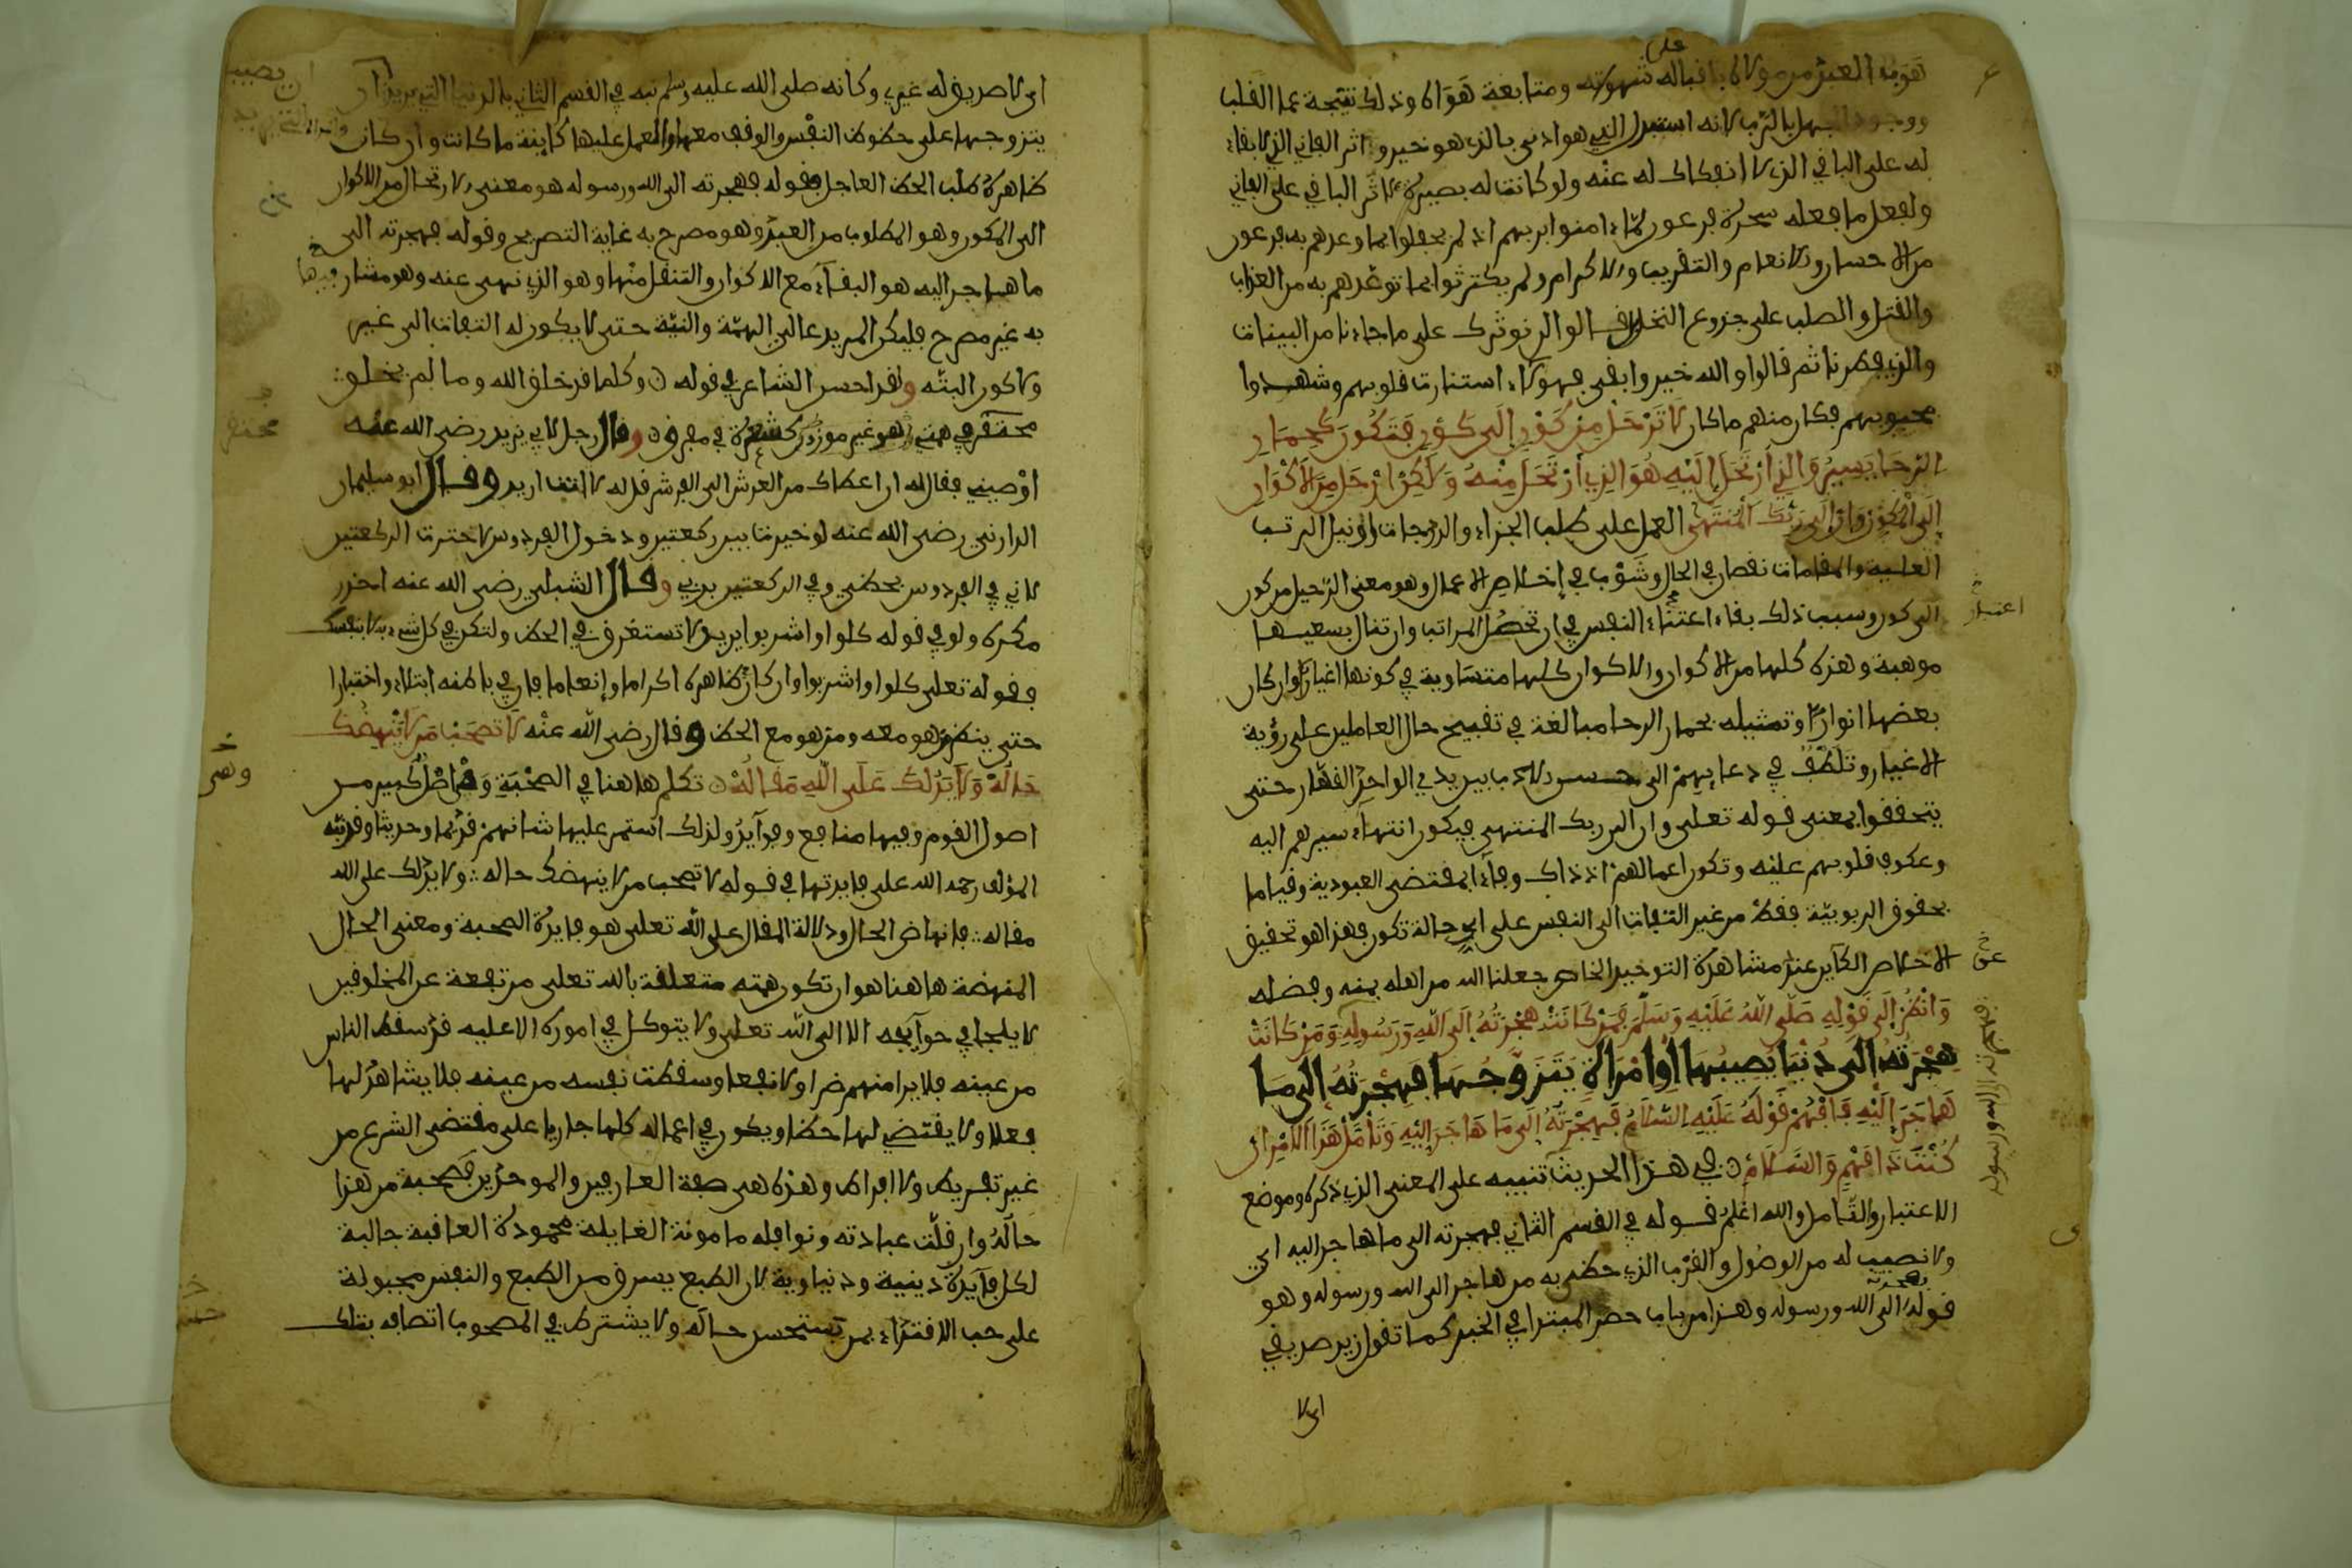 هروب العبد من مولاه باقباله على شهوته ومتابعة هواه وذلك نتيجة عما القلب
ووجود الجهل بالرب لانه استبدل الذي هو ادنى بالذي هو خير واثر الفاني الذي لا بقاء
له على الباقي الذي لا انفكاك له عنه ولو كانت له بصيرة لاثر الباقي على الفاني
ولفعل ما فعله سحرة فرعون لما ءامنوا بربهم اذ لم يحفلوا بما وعدهم به فرعون
من الاحسان والانعام والتقريب والاكرام ولم يكترثوا بما توعدهم به من العذاب
والقتل والصلب على جذوع النخل قالوا لن نوثرك على ما جاءنا من البينات
والذي فطرنا ثم قالوا والله خير وابقى فهولاء استنارت قلوبهم وشهدوا
محبوبهم فكان منهم ما كان لَا تَرْحَلْ مِنْ كَوْنٍ إِلَى كَوْنٍ فَتَكُونَ كَحِمَارِ
الرَّحَا يَسِيرُ وَالذِي ارْتَحَلَ إِلَيْهِ هُوَ الذِي ارْتَحَلَ مِنْهُ وَلَكِنِ ارْحَلْ مِنَ الْأَكْوَانِ
إِلَى الْمُكَوِّنِ وَأَنَّ إِلَى رَبِّكَ الْمُنْتَهَى العمل على طلب الجزاء والدرجات او نيل الرتب
العلية والمقامات نقصان في الحال وشوب في إخلاص الاعمال وهو معنى الرحيل من كون
الى كون وسبب ذلك بقاء اعتناء النفس في ان تحصل المراتب وان تنال بسعيها
اعتبار
موهبة وهذه كلها من الاكوان والاكوان كلها متساوية في كونها اغيارا وان كان
بعضها انوارا وتمثيله بحمار الرحا مبالغة في تقبيح حال العاملين على رؤية
الاغيار وتلطف في دعايهم الى حسن الادب بين يدي الواحد القهار حتى
يتحققوا بمعنى قوله تعلى وان الى ربك المنتهى فيكون انتهاء سيرهم اليه
وعكوف قلوبهم عليه وتكون اعمالهم اذ ذاك وفاء بمقتضى العبودية وقياما
بحقوق الربوبية فقط من غير التفات الى النفس على اي حالة تكون فهذا هو تحقيق
الاخلاص الكاين عند مشاهدة التوحيد الخاص جعلنا الله من اهله بمنه وفضله
عن
وَانْظُرْ إِلَى قَوْلِهِ صَلَّى اللهُ عَلَيْهِ وَسَلَّمَ فَمَنْ كَانَتْ هِجْرَتُهُ إِلَى اللهِ وَرَسُولِهِ وَمَنْ كَانَتْ
فهجرته الى الله ورسوله
هِجْرَتُهُ إِلَى دُنْيَا يُصِيبُهَا أَوِ امْرَأَةٍ يَتَزَوَّجُهَا فَهِجْرَتُهُ إِلَى مَا
هَاجَرَ إِلَيْهِ فَافْهَمْ قَوْلَهُ عَلَيْهِ السَّلَامُ فَهِجْرَتُهُ إِلَى مَا هَاجَرَ إِلَيْهِ وَتَأَمَّلْ هَذَا الْأَمْرَ إِنْ
كُنْتَ ذَا فَهْمٍ وَالسَّلَامُ في هذا الحديث تنبيه على المعنى الذي ذكره وموضع
الاعتبار والتامل والله اعلم قوله في القسم الثاني فهجرته الى ما هاجر اليه اي
ولا نصيب له من الوصول والقرب الذي حظي به من هاجر الى الله ورسوله وهو
قوله فهجرته الى الله ورسوله وهذا من باب حصر المبتدا في الخبر كما تقول زيد صديقي
اي لا
اي لا صديق له غيري وكانه صلى الله عليه وسلم نبه في القسم الثاني بالدنيا التي يريد ان
ان يصيبها
يتزوجها على حظوظ النفس والوقوف معها والعمل عليها كاينة ما كانت وان كان
ظاهره طلب الحظ العاجل فقوله فهجرته الى الله ورسوله هو معنى الارتحال من الاكوان
الى المكون وهو المطلوب من العبد وهو مصرح به غاية التصريح وقوله فهجرته الى
ما هاجر اليه هو البقاء مع الاكوان والتنقل فيها وهو الذي نهى عنه وهو مشار
به غير مصرح فليكن المريد عالي الهمة والنية حتى لا يكون له التفات الى غير
ولا كون البتة ولقد احسن الشاعر في قوله وكلما قد خلق الله وما لم يخلق
محتقر في همتي كشعرة في مفرقي وقال رجل لابي يزيد رضي الله عنه
محتقر
اوصيني فقال له ان اعطاك من العرش الى الفرش فقل له لا انت اريد وقال ابو سليمان
الداراني رضي الله عنه لو خيرت بين ركعتين ودخول الفردوس لاخترت الركعتين
لاني في الفردوس بحظي وفي الركعتين بربي وقال الشبلي رضي الله عنه احذر
مكره ولو في قوله كلوا واشربوا يريد لا تستغرق في الحظ ولتكن في كل شيء به لا بنفسك
فقوله تعلى كلوا واشربوا وان كان ظاهره اكراما وإنعاما فان في باطنه ابتلاء واختبارا
حتى ينظر من هو معه ومن هو مع الحظ وقال رضي الله عنه لَا تَصْحَبْ مَنْ لَا يُنْهِضُكَ
حَالُهُ وَلَا يَدُلُّكَ عَلَى اللهِ مَقَالُهُ تكلم هاهنا في الصحبة وهي اصل كبير من
وهي
اصول القوم وفيها منافع وفوايد ولذلك استمر عليها شانهم قديما وحديثا وقد نبه
المؤلف رحمه الله على فايدتها في قوله لا تصحب من لا ينهضك حاله ولا يدلك على الله
مقاله فانهاض الحال ودلالة المقال على الله تعلى هو فايدة الصحبة ومعنى الحال
المنهضة هاهنا هو ان تكون همته متعلقة بالله تعلى مرتفعة عن المخلوقين
لا يلجا في حوايجه الا الى الله تعلى ولا يتوكل في اموره الا عليه قد سقط الناس
من عينه فلا يرا منهم ضرا ولا نفعا وسقطت نفسه من عينه فلا يشاهد لها
فعلا ولا يقتضي لها حظا ويكون في اعماله كلها جاريا على مقتضى الشرع من
غير تفريط ولا افراط وهذه هي صفة العارفين والموحدين فصحبة من هذا
حاله وان قلت عبادته ونوافله مامونة الغايلة محمودة العاقبة جالبة
لكل فايدة دينية ودنياوية لان الطبع يسرق من الطبع والنفس مجبولة
على حب الاقتداء بمن تستحسن حاله ولا يشترط في المصحوب اتصافه بتلك